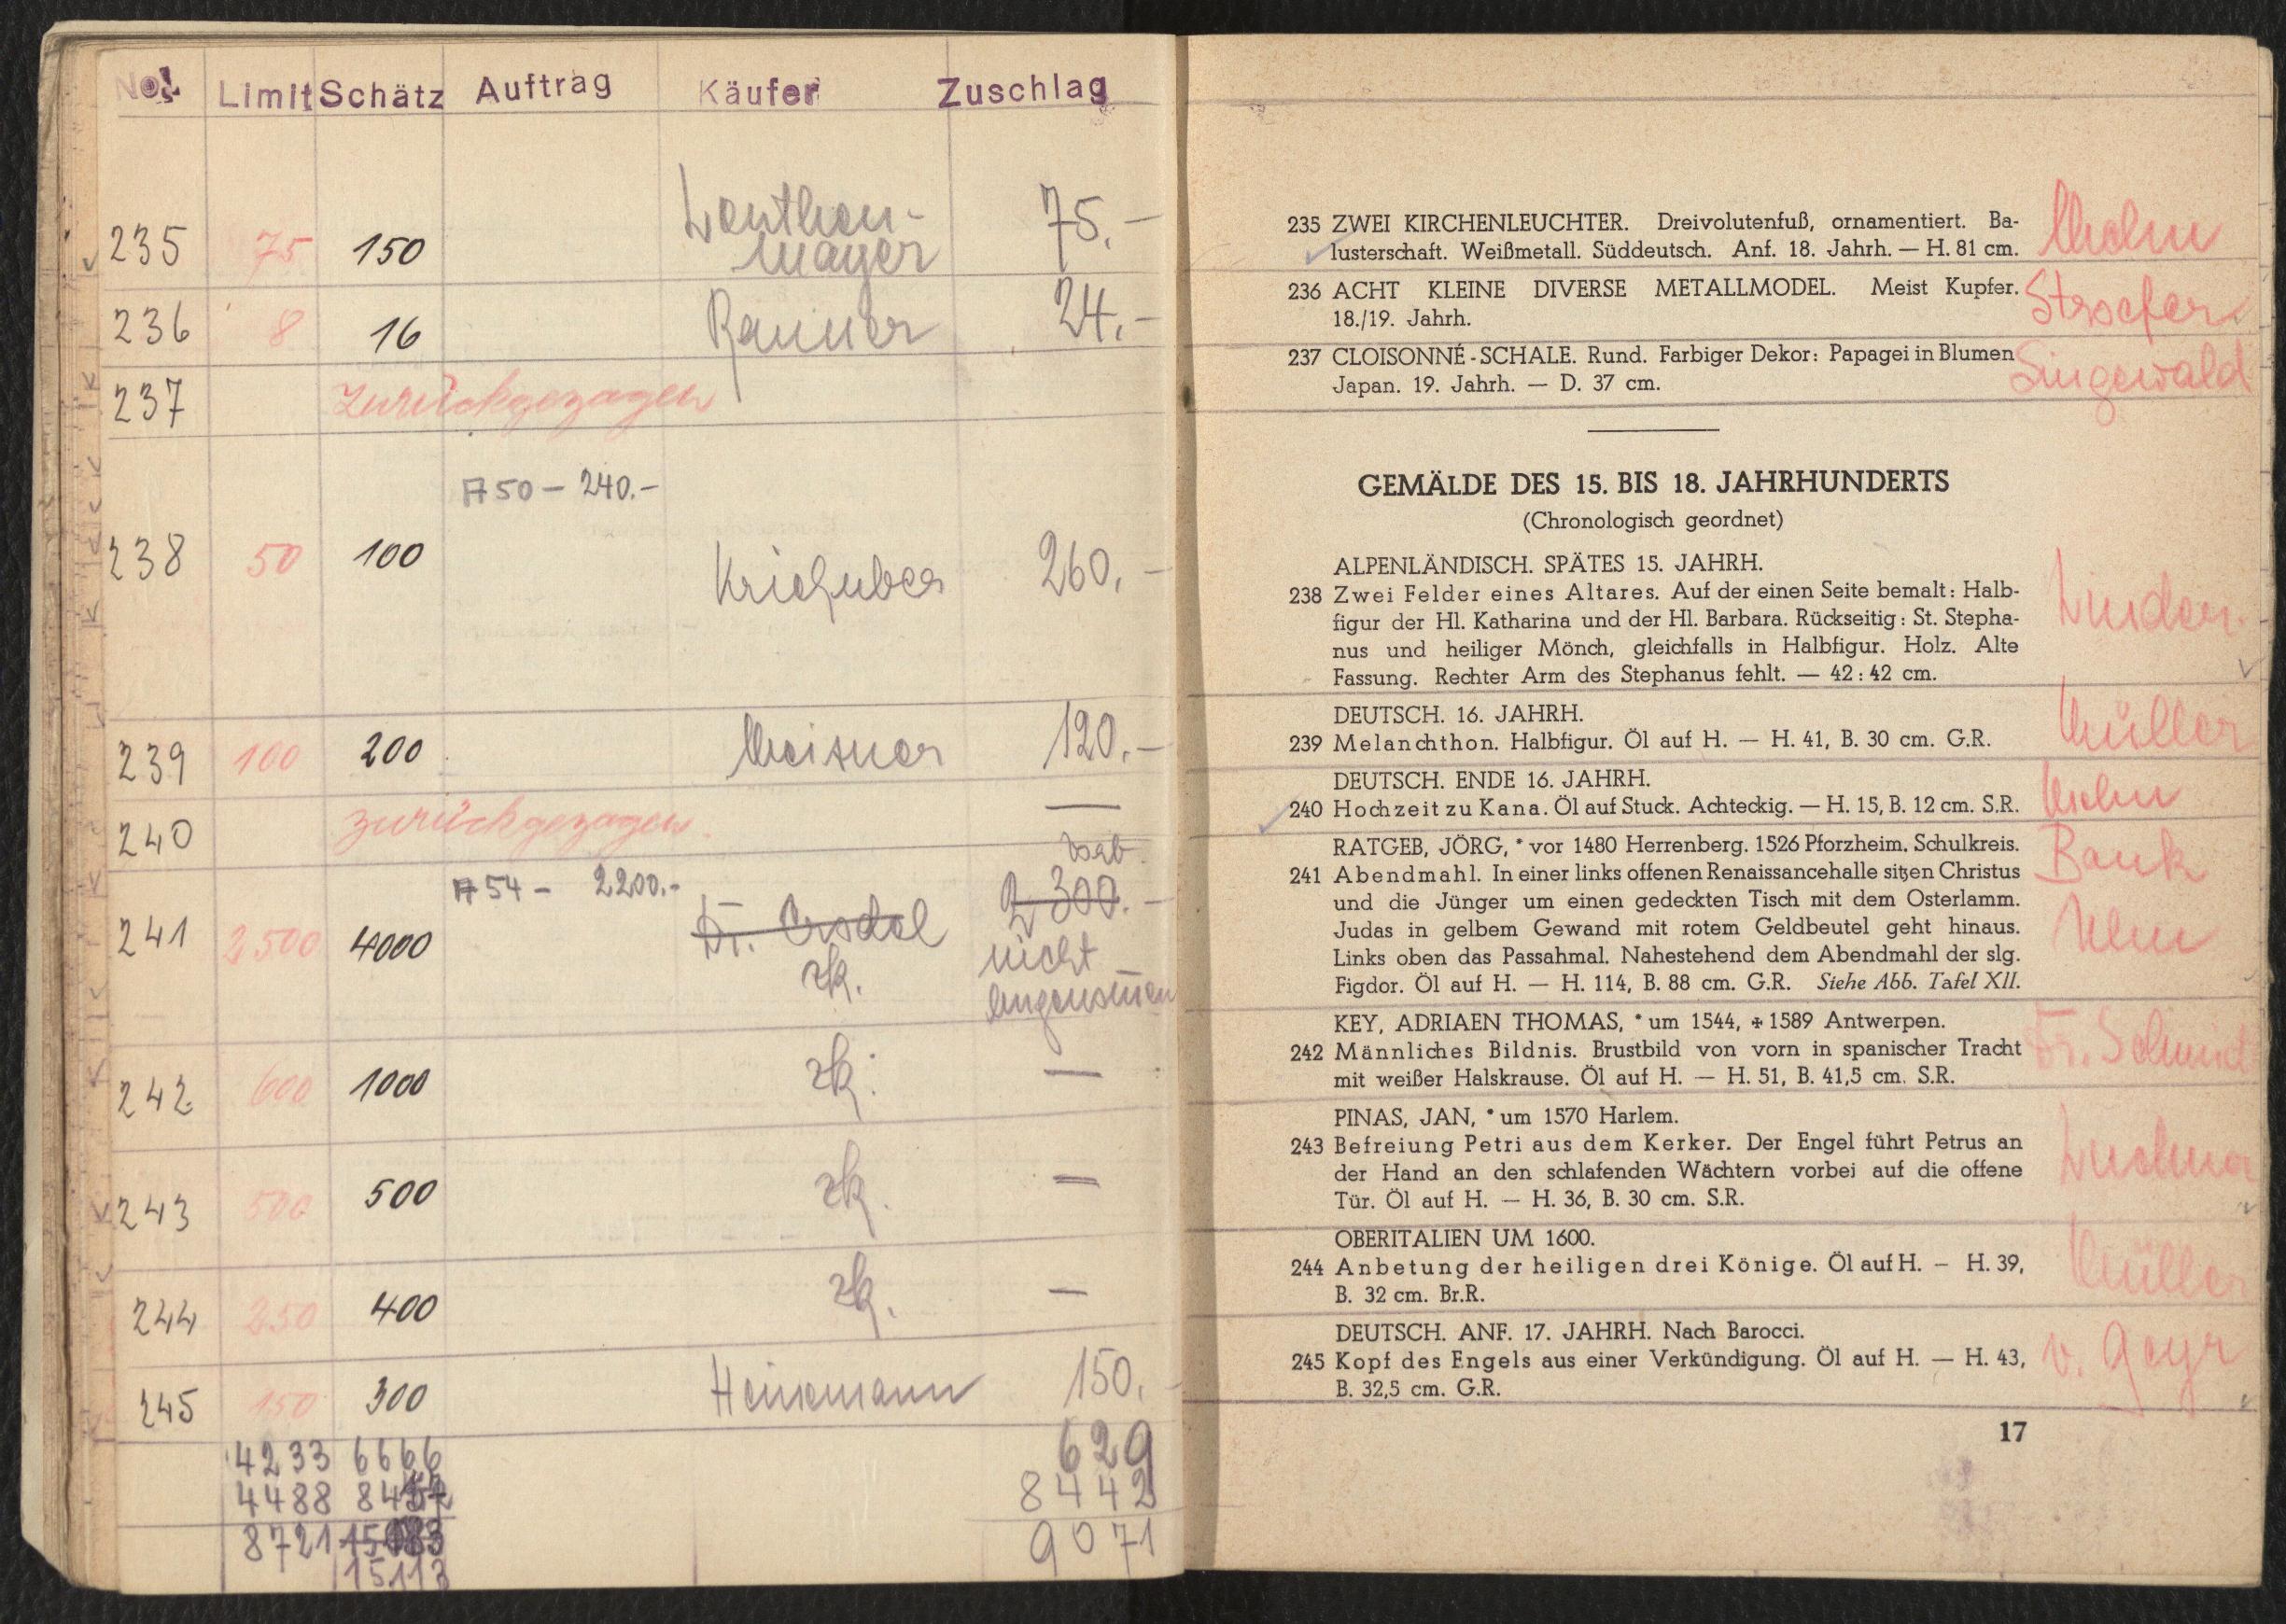 No. Limit Schätz Auftrag Käufer Zuschlag
235 75 150 75.-
mayer
236 8 16 24.-
237 zurückgezogen
A 50 - 240.-
238 50 100 Kriehuber 260.-
239 100 200 Meisner 120.-
240 zurückgezogen. —
A 54 - 2200.- 2300.-
241 2500 4000 Dr. zk. nicht
angenomen
242 600 1000 zk. —
243 500 500 zk. —
244 250 400 zk. —
245 150 300 Heinemann 150.
4233 6666 629
4488 8442
8721 9071
15113
235 ZWEI KIRCHENLEUCHTER. Dreivolutenfuß, ornamentiert. Ba-
lusterschaft. Weißmetall. Süddeutsch. Anf. 18. Jahrh. — H. 81 cm.
236 ACHT KLEINE DIVERSE METALLMODEL. Meist Kupfer.
18./19. Jahrh.
Stroefer
237 CLOISONNÉ-SCHALE. Rund. Farbiger Dekor: Papagei in Blumen
Japan. 19. Jahrh. — D. 37 cm.
Singewald
GEMÄLDE DES 15. BIS 18. JAHRHUNDERTS
(Chronologisch geordnet)
ALPENLÄNDISCH. SPÄTES 15. JAHRH.
238 Zwei Felder eines Altares. Auf der einen Seite bemalt: Halb-
figur der Hl. Katharina und der Hl. Barbara. Rückseitig: St. Stepha-
nus und heiliger Mönch, gleichfalls in Halbfigur. Holz. Alte
Fassung. Rechter Arm des Stephanus fehlt. — 42 : 42 cm.
DEUTSCH. 16. JAHRH.
239 Melanchthon. Halbfigur. Öl auf H. — H. 41, B. 30 cm. G.R.
Müller
DEUTSCH. ENDE 16. JAHRH.
240 Hochzeit zu Kana. Öl auf Stuck. Achteckig. — H. 15, B. 12 cm. S.R.
RATGEB, JÖRG, * vor 1480 Herrenberg. 1526 Pforzheim. Schulkreis.
241 Abendmahl. In einer links offenen Renaissancehalle sitzen Christus
und die Jünger um einen gedeckten Tisch mit dem Osterlamm.
Judas in gelbem Gewand mit rotem Geldbeutel geht hinaus.
Links oben das Passahmal. Nahestehend dem Abendmahl der slg.
Figdor. Öl auf H. — H. 114, B. 88 cm. G.R. Siehe Abb. Tafel XII.
Bank
Ulm
KEY, ADRIAEN THOMAS, * um 1544, ✠ 1589 Antwerpen.
242 Männliches Bildnis. Brustbild von vorn in spanischer Tracht
mit weißer Halskrause. Öl auf H. — H. 51, B. 41,5 cm. S.R.
PINAS, JAN, * um 1570 Harlem.
243 Befreiung Petri aus dem Kerker. Der Engel führt Petrus an
der Hand an den schlafenden Wächtern vorbei auf die offene
Tür. Öl auf H. — H. 36, B. 30 cm. S.R.
OBERITALIEN UM 1600.
244 Anbetung der heiligen drei Könige. Öl auf H. — H. 39,
B. 32 cm. Br.R.
Müller
DEUTSCH. ANF. 17. JAHRH. Nach Barocci.
245 Kopf des Engels aus einer Verkündigung. Öl auf H. — H. 43,
B. 32,5 cm. G.R.
v. Geyr
17